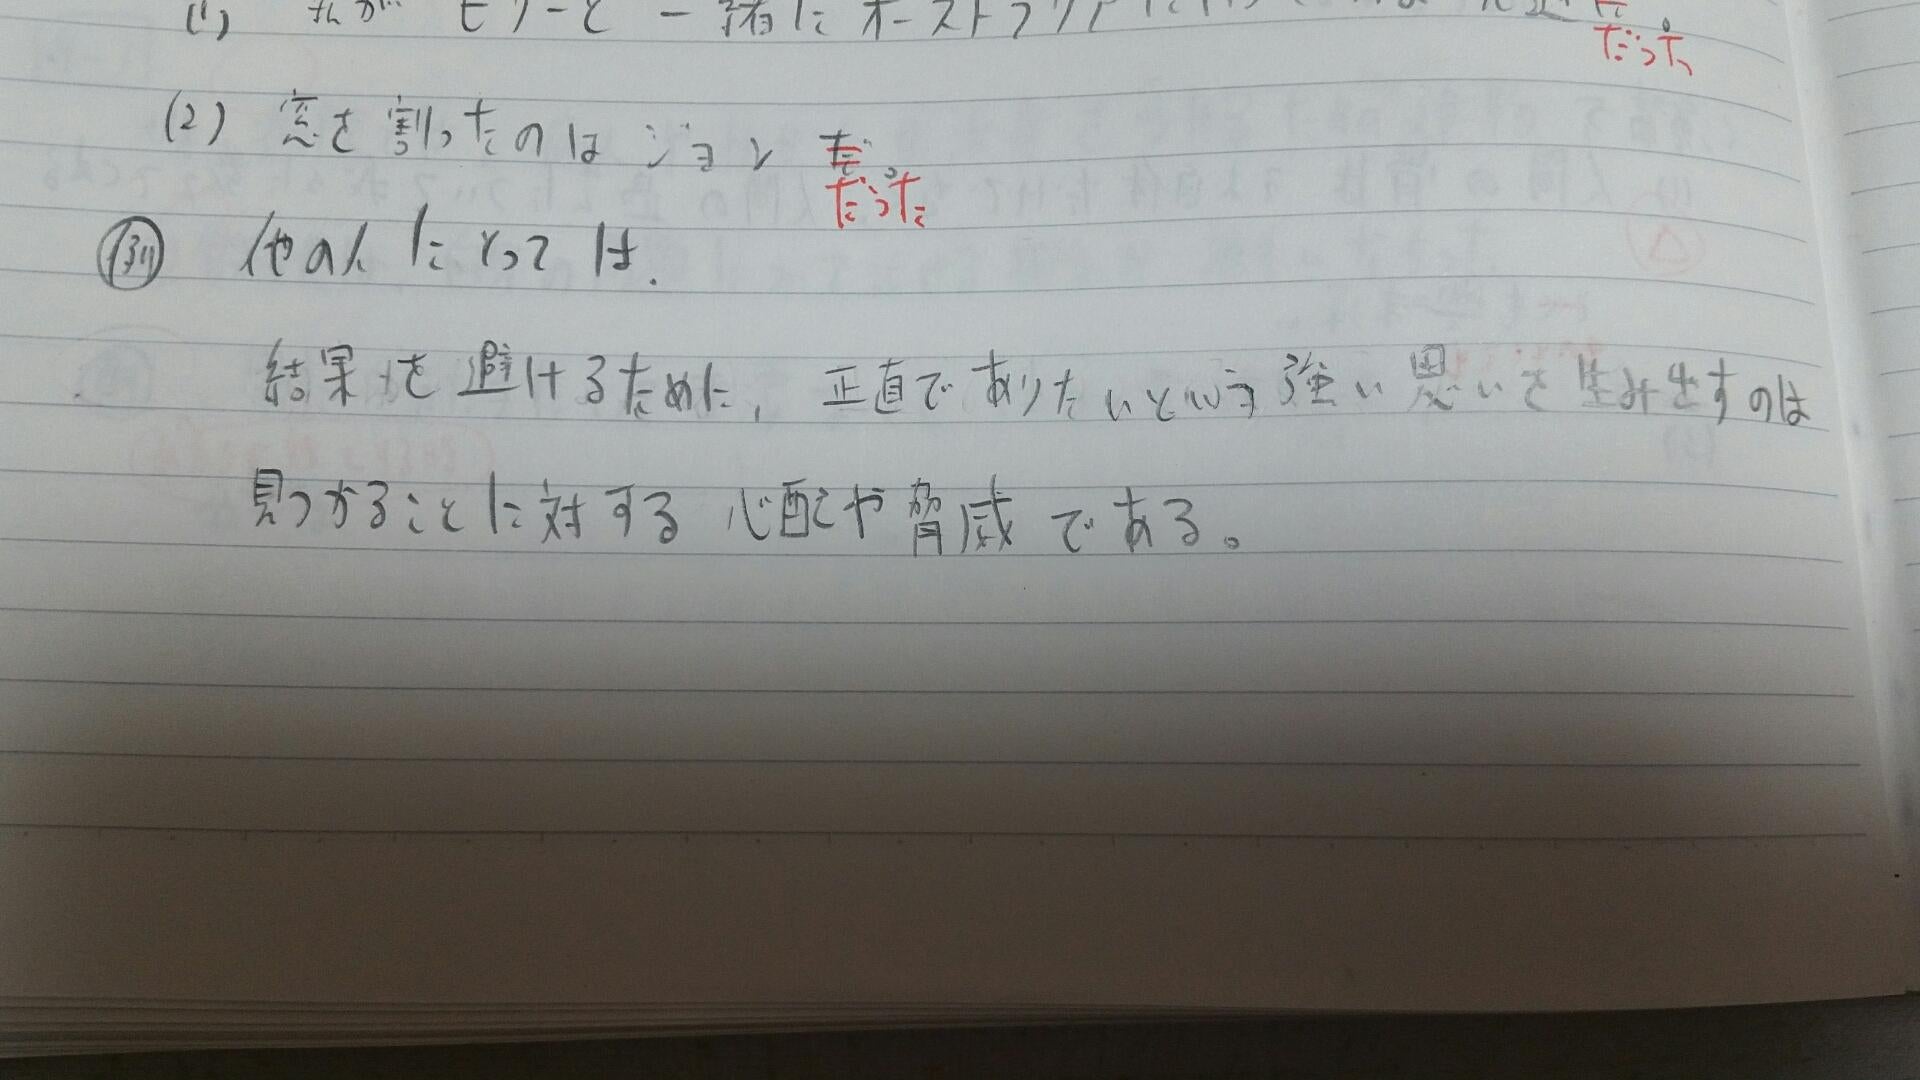 (1) 私が モリーと 一緒に オーストラリア に行 だ
だった
(2) 窓を 割ったのは ジョン だ。
だった
例 他の人にとっては.
結果を避けるために, 正直でありたいという強い思いを生み出すのは
見つかることに対する心配や脅威である。